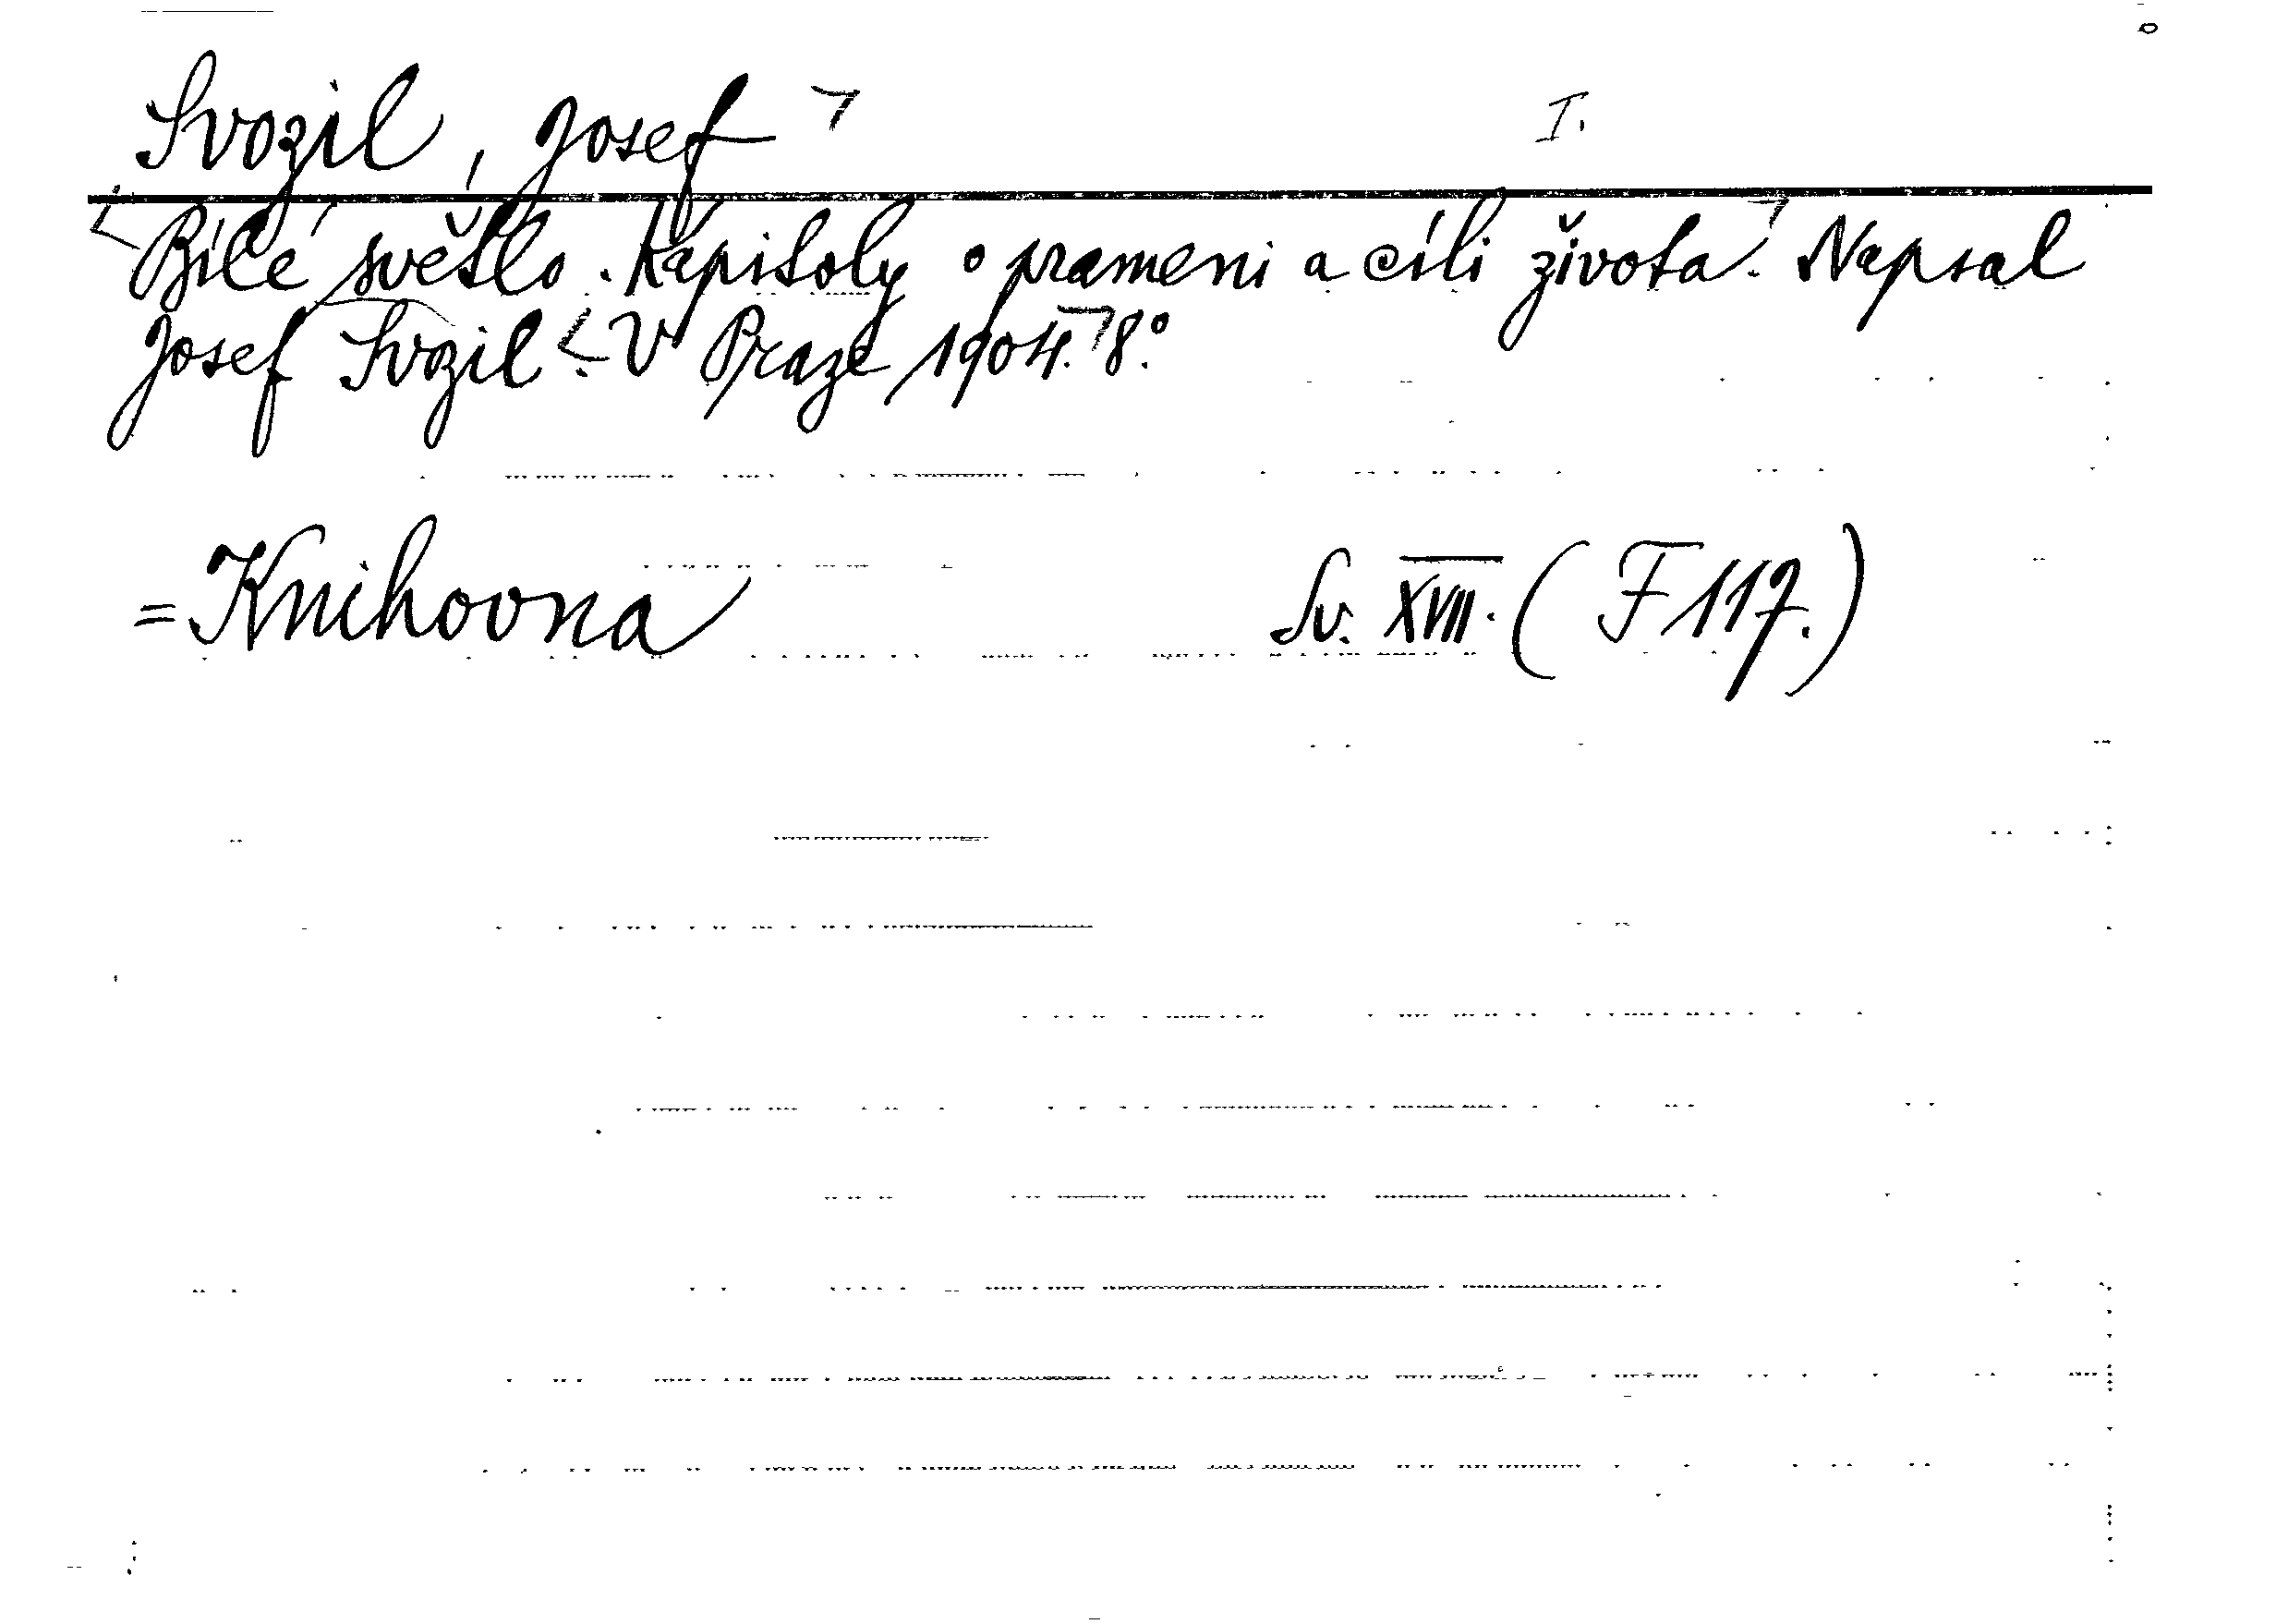 Svozil, Josef I.
Bílé světlo. Kapitoly o prameni a cíli života. Napsal
Josef Svozil. V Praze 1904. 8°.
= Knihovna Sv. XVII. (F 117.)